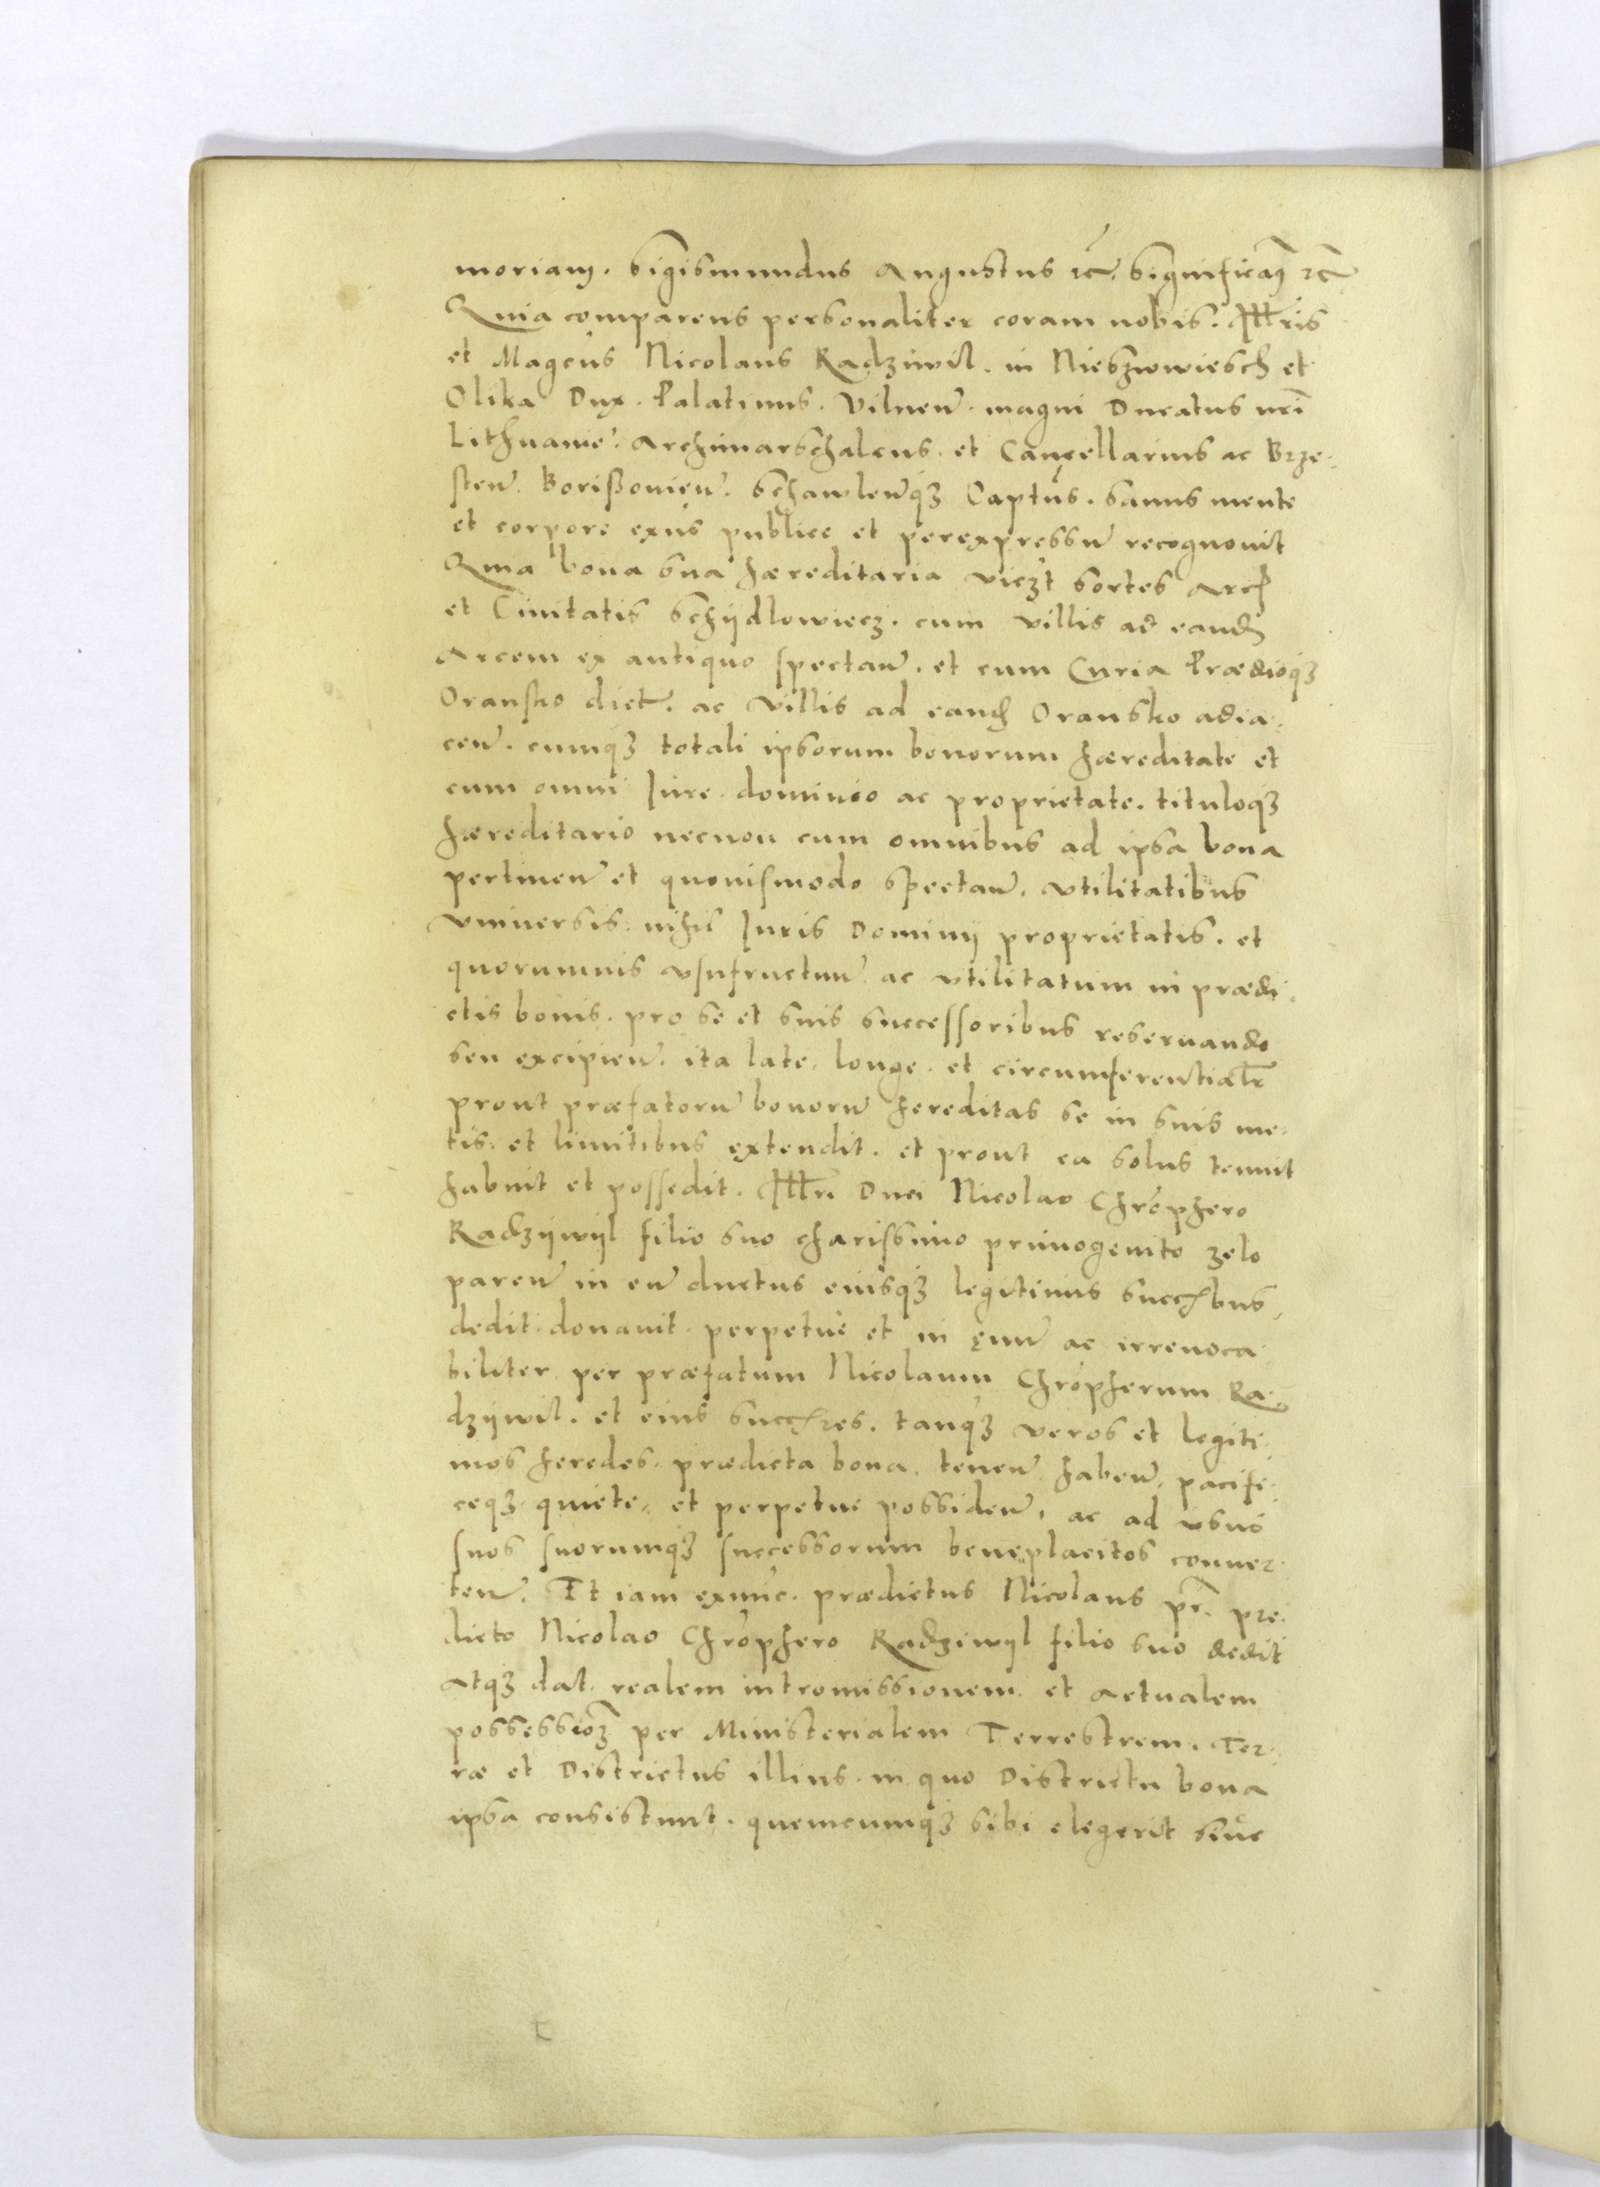 moriam. Sigismundus Augustus rc̄. Significam̃ rc̄
Quia comparens personaliter coram nobis. Illris
et Magcus Nicolaus Radziwil. in Nieszwowiesch et
Olika Dux. Palatinus. Vilnen̄. magni Ducatus nr̄i
Lithuanie. Archimarschalcus. et Cancellarius ac Brze-
sten̄. Borissovien̄. Schawlen̄q3 Captus. sanus mente
et corpore exn̄s publice et per expressum̄ recognovit
Quia bona sua hæreditaria viczt sortes Arc̄
et Civitatis Schijdlowiecz. cum villis ad eand̄
Arcem ex antiquo spectan̄. et cum Curia Prædioq3
Oransko dict. ac villis ad eand̄ Oransko adia-
cen̄. cumq3 totali ipsorum bonorum hæreditate et
cum omni Iure. dominio ac proprietate. tituloq3
hæreditario necnon cum omnibus ad ipsa bona
pertinen̄ et quovismodo spectan̄. utilitatibus
universis. nihil Iuris Dominij proprietatis. et
quorumvis usufructuum̄ ac utilitatum in prædi-
ctis bonis. pro se et suis successoribus reservando
seu excipien̄. ita late. longe. et circumferentialr̄
prout præfatorum̄ bonorum̄ hereditas se in suis me-
tis. et limitibus extendit. et prout ea solus tenuit
habuit et possedit. Illri Duci Nicolao Chr̄ophero
Radzijwijl filio suo charissimo primogenito zelo
paren̄ in eum̄ ductus eiusq3 legitimis succ̄bus.
dedit. donavit. perpetue et in ęvum̄ ac irrevoca-
biliter per præfatum Nicolaum Chr̄opherum Ra-
dzijwil. et eius succ̄res. tanq3 veros et legiti-
mos heredes. prædicta bona. tenen̄ haben̄. pacifi-
ceq3 quiete. et perpetue possiden̄. ac ad usus
suos suorumq3 successorum beneplacitos conver-
ten̄. Et iam exnūc. prædictus Nicolaus pr̄. pre-
dicto Nicolao Chr̄ophero Radziwijl filio suo dedit
atq3 dat. realem intromissionem. et actualem
possessio3 per Ministerialem Terrestrem. Ter-
ræ et Districtus illius. in quo Districtu bona
ipsa consistunt. quemcumq3 sibi elegerit sive